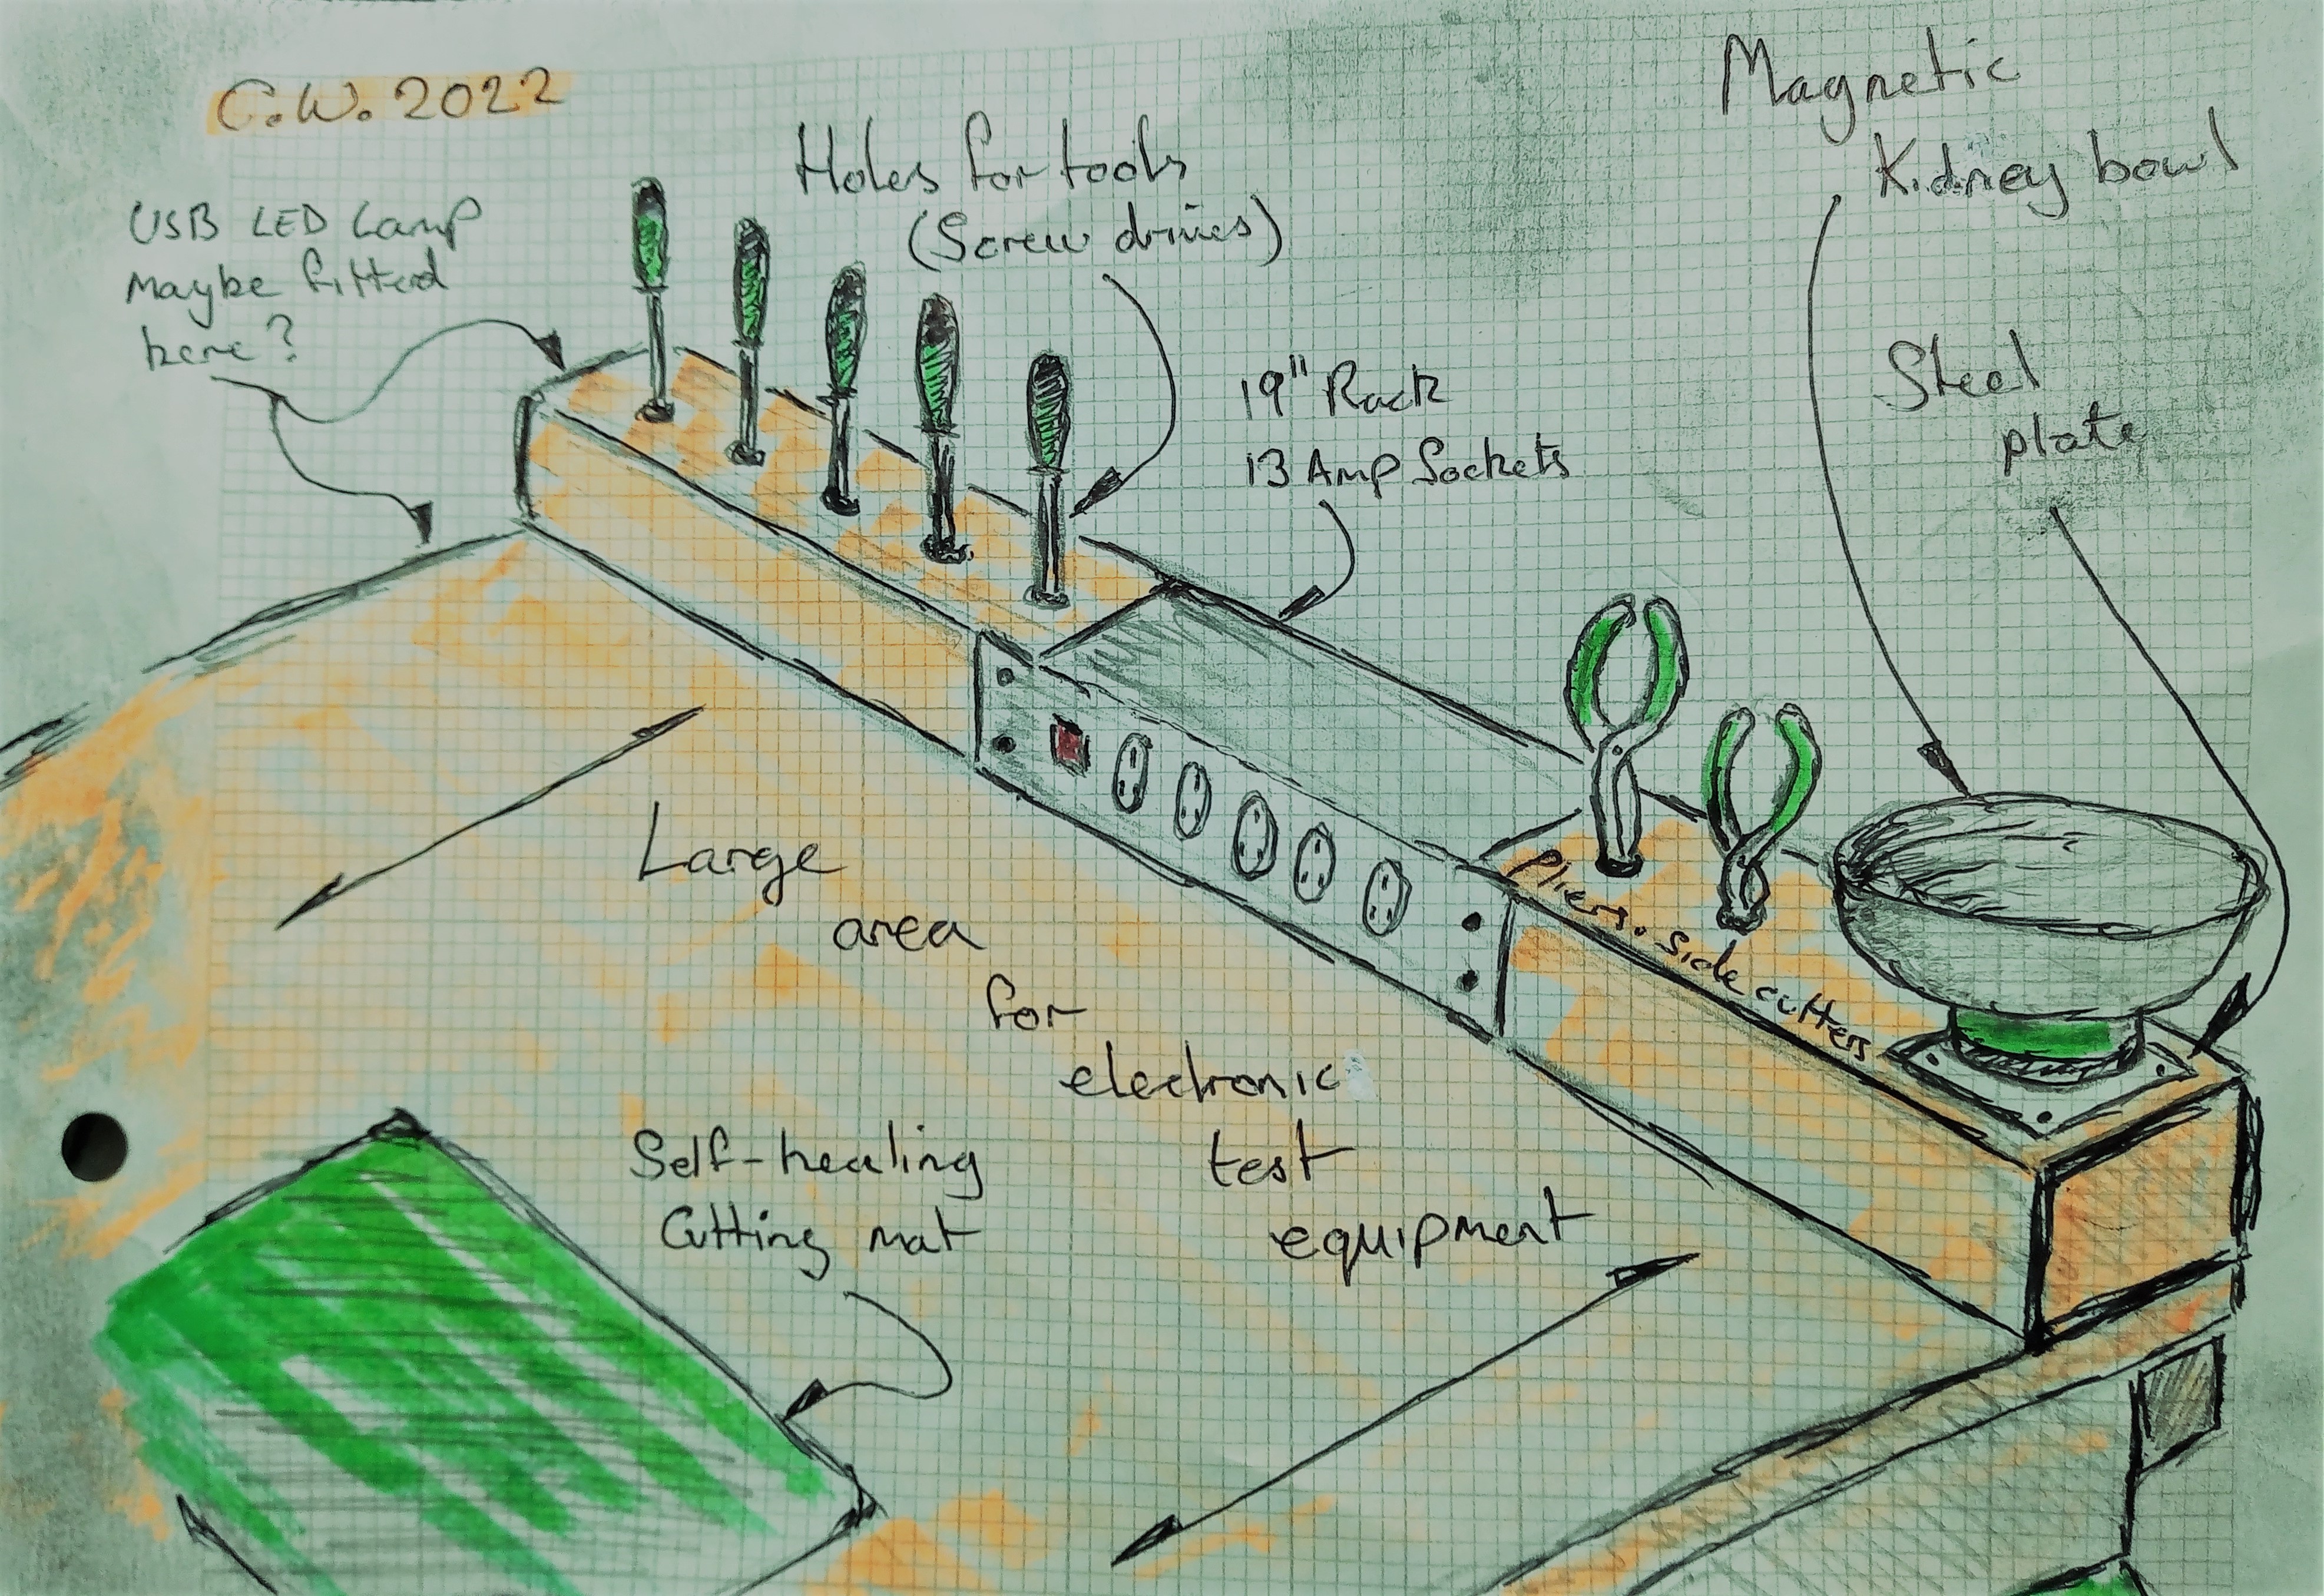 C.W. 2022
USB LED Lamp
Maybe fitted
here?
Holes for tools
(Screw drives)
19" Rack
13 Amp Sockets
Magnetic
Kidney bowl
Steel
plate
Pliers. Side cutters
Large
area
for
electronic
test
equipment
Self-healing
Cutting mat